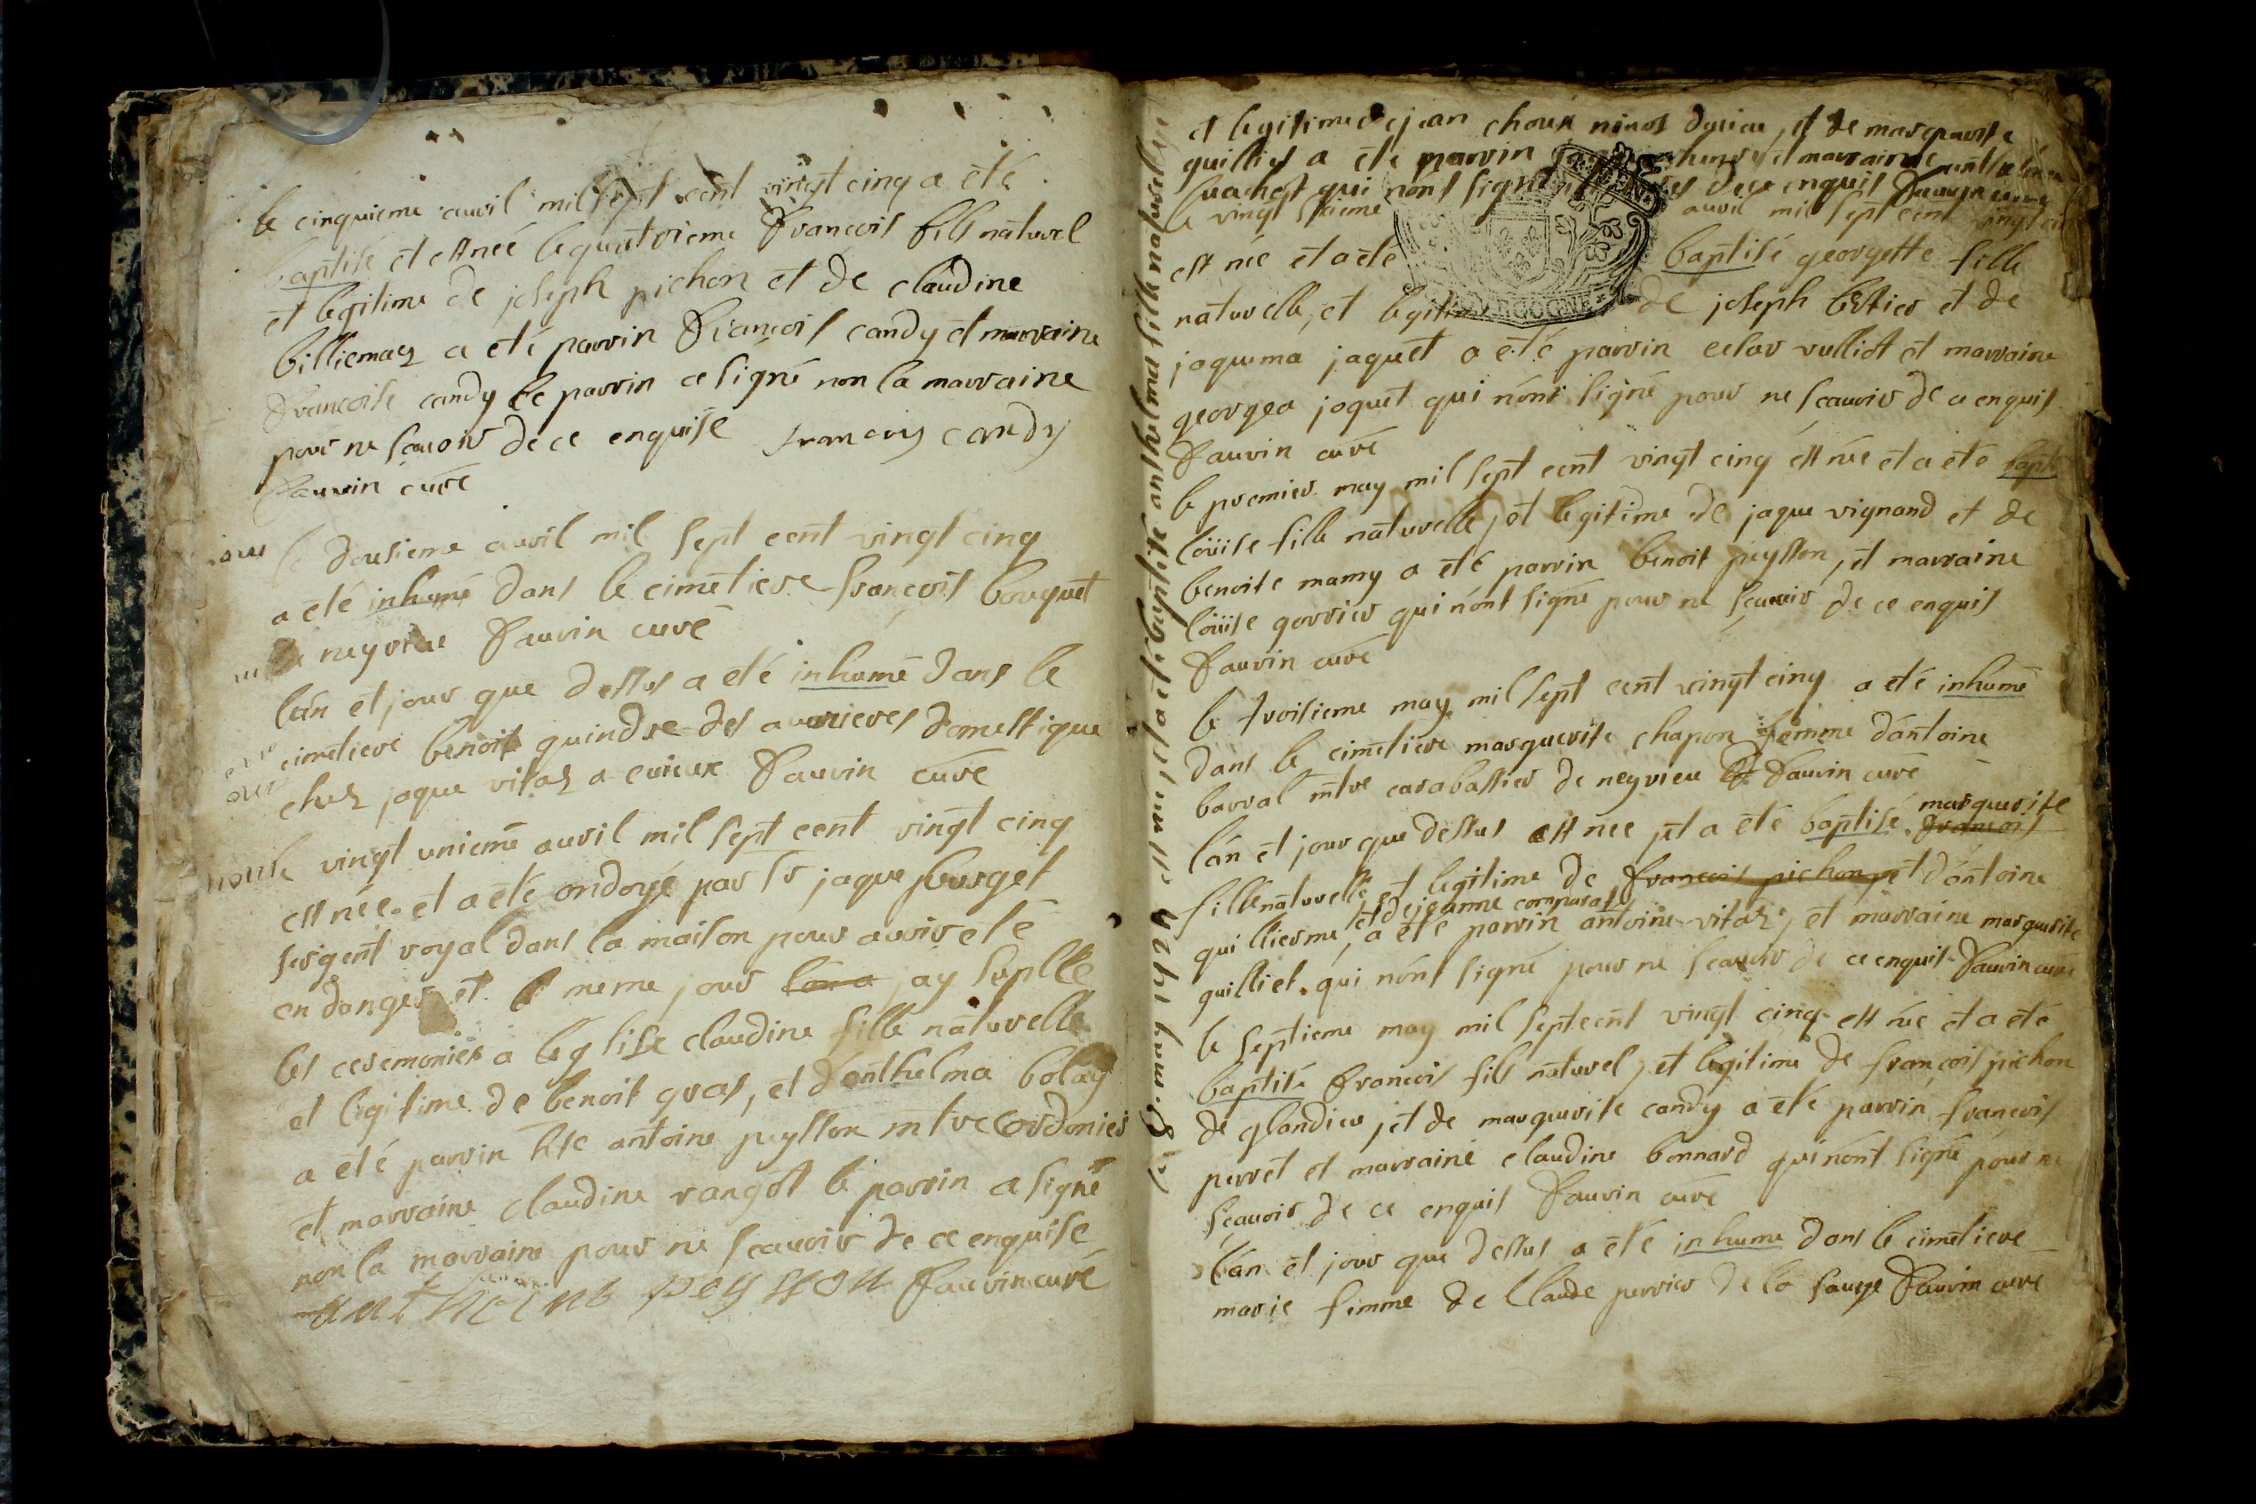 le cinquieme auril mil sept cent vingt cinq a été
baptisé et est neé le quatrieme francois fils naturel
et legitime de joseph pichon et de claudine
billiemaz a eté parrin francois candy et marraine
francoise candy le parrin a signé non la marraine
pour ne scauoir de ce enquise francoys candy
fauvin curé
le dousieme auril mil sept cent vingt cinq
a eté inhumé dans le cimetiere francois bouquet
neyrieu fauvin curé
lán et jour que dessus a eté inhumé dans le
cimetiere benoit guindre des auenieres domestique
chez jaque vitoz a euieux fauvin curé
vingt unieme auril mil sept cent vingt cinq
est née et a eté ondoyé par sr jaque bourget
sergent royal dans la maison pour auoir eté
en danger et meme jour jay suplée
les ceremonies a leglise claudine fille naturelle
et legitime de benoit gras, et d'anthelma bolay
a eté parrin antoine peysson mtre cordonier
et marraine claudine rangot le parrin a signé
non la marraine pour ne scauoir de ce enquise
anthoine peysson fauvin curé
le 8. may 1724 est neé et a eté baptisé anthelma fille naturelle
et legitime de jean choux et de marguerite
quilliet a eté parrin et marraine
qui nónt signé de ce enquis fauvin curé
le vingt auril mil sept cent vingt
est née et a eté baptisé georgette fille
naturelle, et de joseph bertier et de
jaquema jaquet a eté parrin vulliot et marraine
georgea jaquet qui nónt signé pour ne scauoir de ce enquis
fauvin curé
le premier may mil sept cent vingt cinq est née et a eté
loüise fille naturelle, et legitime de jaque vignand et de
benoite mamy a eté parrin benoit peysson, et marraine
loüise gorrier qui nónt signé pour ne scauoir de ce enquis
fauvin curé
le troisieme may mil sept cent vingt cinq a eté inhumé
dans le cimetiere marguerite chapon femme dántoine
barral mtre carabassier de neyrieu fauvin curé
marguerite
lán et jour que dessus est née et a eté baptisé francois
fille naturelle et legitime de francois pichon et dántoine
et de jeanne comparat
quillierme, a eté parrin antoine vitoz, et marraine marguerite
quilliet. qui nónt signé pour ne scauoir de ce enquis fauvin curé
le septieme may mil sept cent vingt cinq est née et a eté
baptisé francois fils naturel, et legitime de francois pichon
de glandieu, et de marguerite candy a eté parrin francois
perret et marraine claudine bonnard qui nónt signé pour ne
scauoir de ce enquis fauvin curé
lán et jour que dessus a eté inhumé dans le cimetiere
marie femme de claude perrier de la sauge fauvin curé